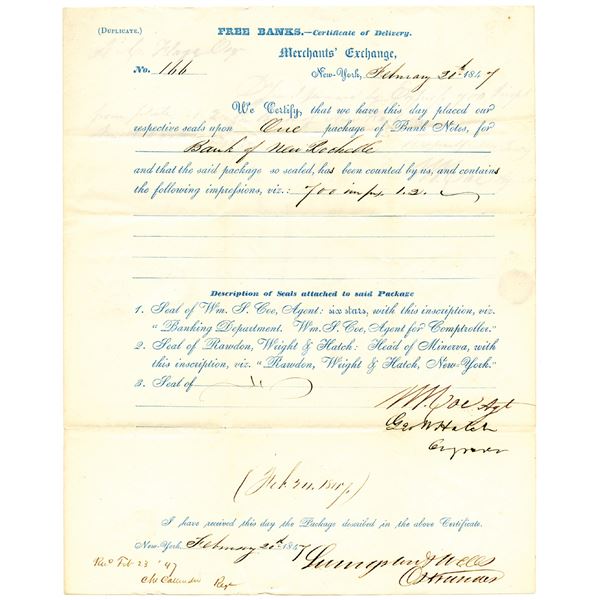 (DUPLICATE.)
FREE BANKS.—Certificate of Delivery.
Merchants' Exchange,
No. 166
New-York, February 20th 1847
We Certify, that we have this day placed our
respective seals upon One package of Bank Notes, for
Bank of New Rochelle
and that the said package so sealed, has been counted by us, and contains
the following impressions, viz.: 700 imps 1.2.
Description of Seals attached to said Package
1. Seal of Wm. S. Coe, Agent: six stars, with this inscription, viz.
"Banking Department. Wm. S. Coe, Agent for Comptroller."
2. Seal of Rawdon, Wright & Hatch: Head of Minerva, with
this inscription, viz. "Rawdon, Wright & Hatch, New-York."
3. Seal of
Wm. S. Coe Agt
Geo W Hatch
Engraver
(Feb 24. 1847)
I have received this day the Package described in the above Certificate.
New-York. February 20th 1847
Livingston & Wells
Rec'd Feb 23 '47
Reg